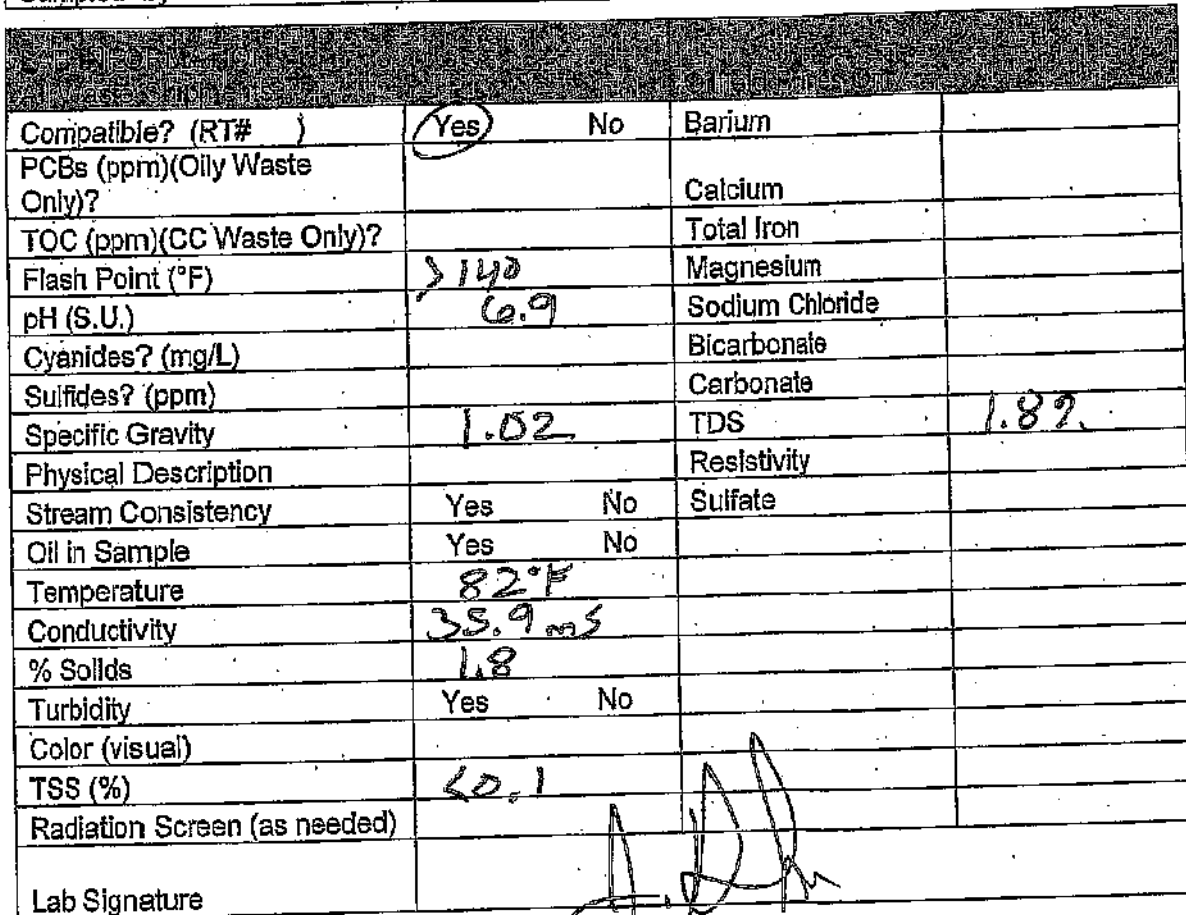 LAB INFORMATION
Compatible? (RT# ) Yes No Barium
PCBs (ppm)(Oily Waste
Only)? Calcium
TOC (ppm)(CC Waste Only)? Total Iron
Flash Point (°F) >140 Magnesium
pH (S.U.) 6.9 Sodium Chloride
Cyanides? (mg/L) Bicarbonate
Sulfides? (ppm) Carbonate
Specific Gravity 1.02 TDS
Physical Description Resistivity
Stream Consistency Yes No Sulfate
Oil in Sample Yes No
Temperature 82°F
Conductivity 35.9 mS
% Solids 1.8
Turbidity Yes No
Color (visual)
TSS (%) <0.1
Radiation Screen (as needed)
Lab Signature